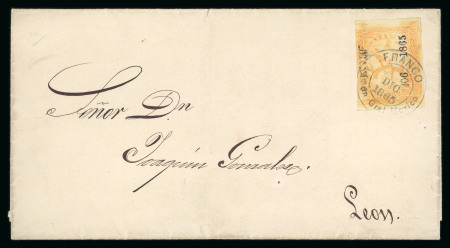 FRANCO
DIC
1865
106 1865
Señor Dn
Joaquin Gonzalez.
Leon.